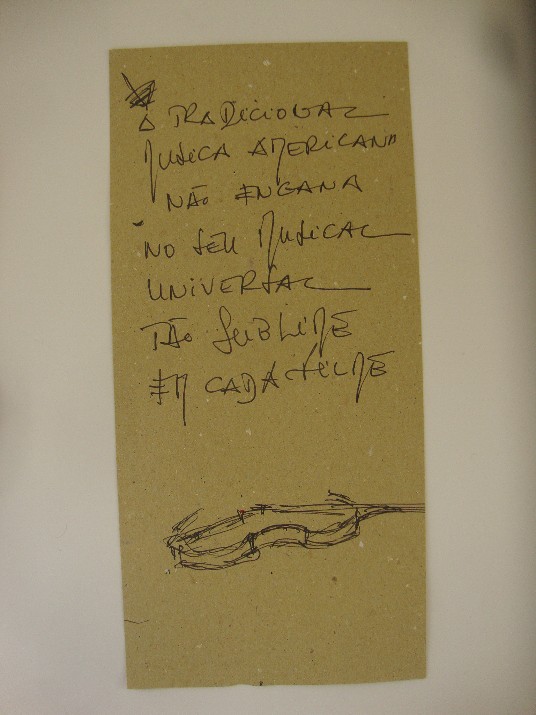 A TRADICIONAL
MUSICA AMERICANA
NÃO ENGANA
NO SEU MUSICAL
UNIVERSAL
TÃO SUBLIME
EM CADA FILME